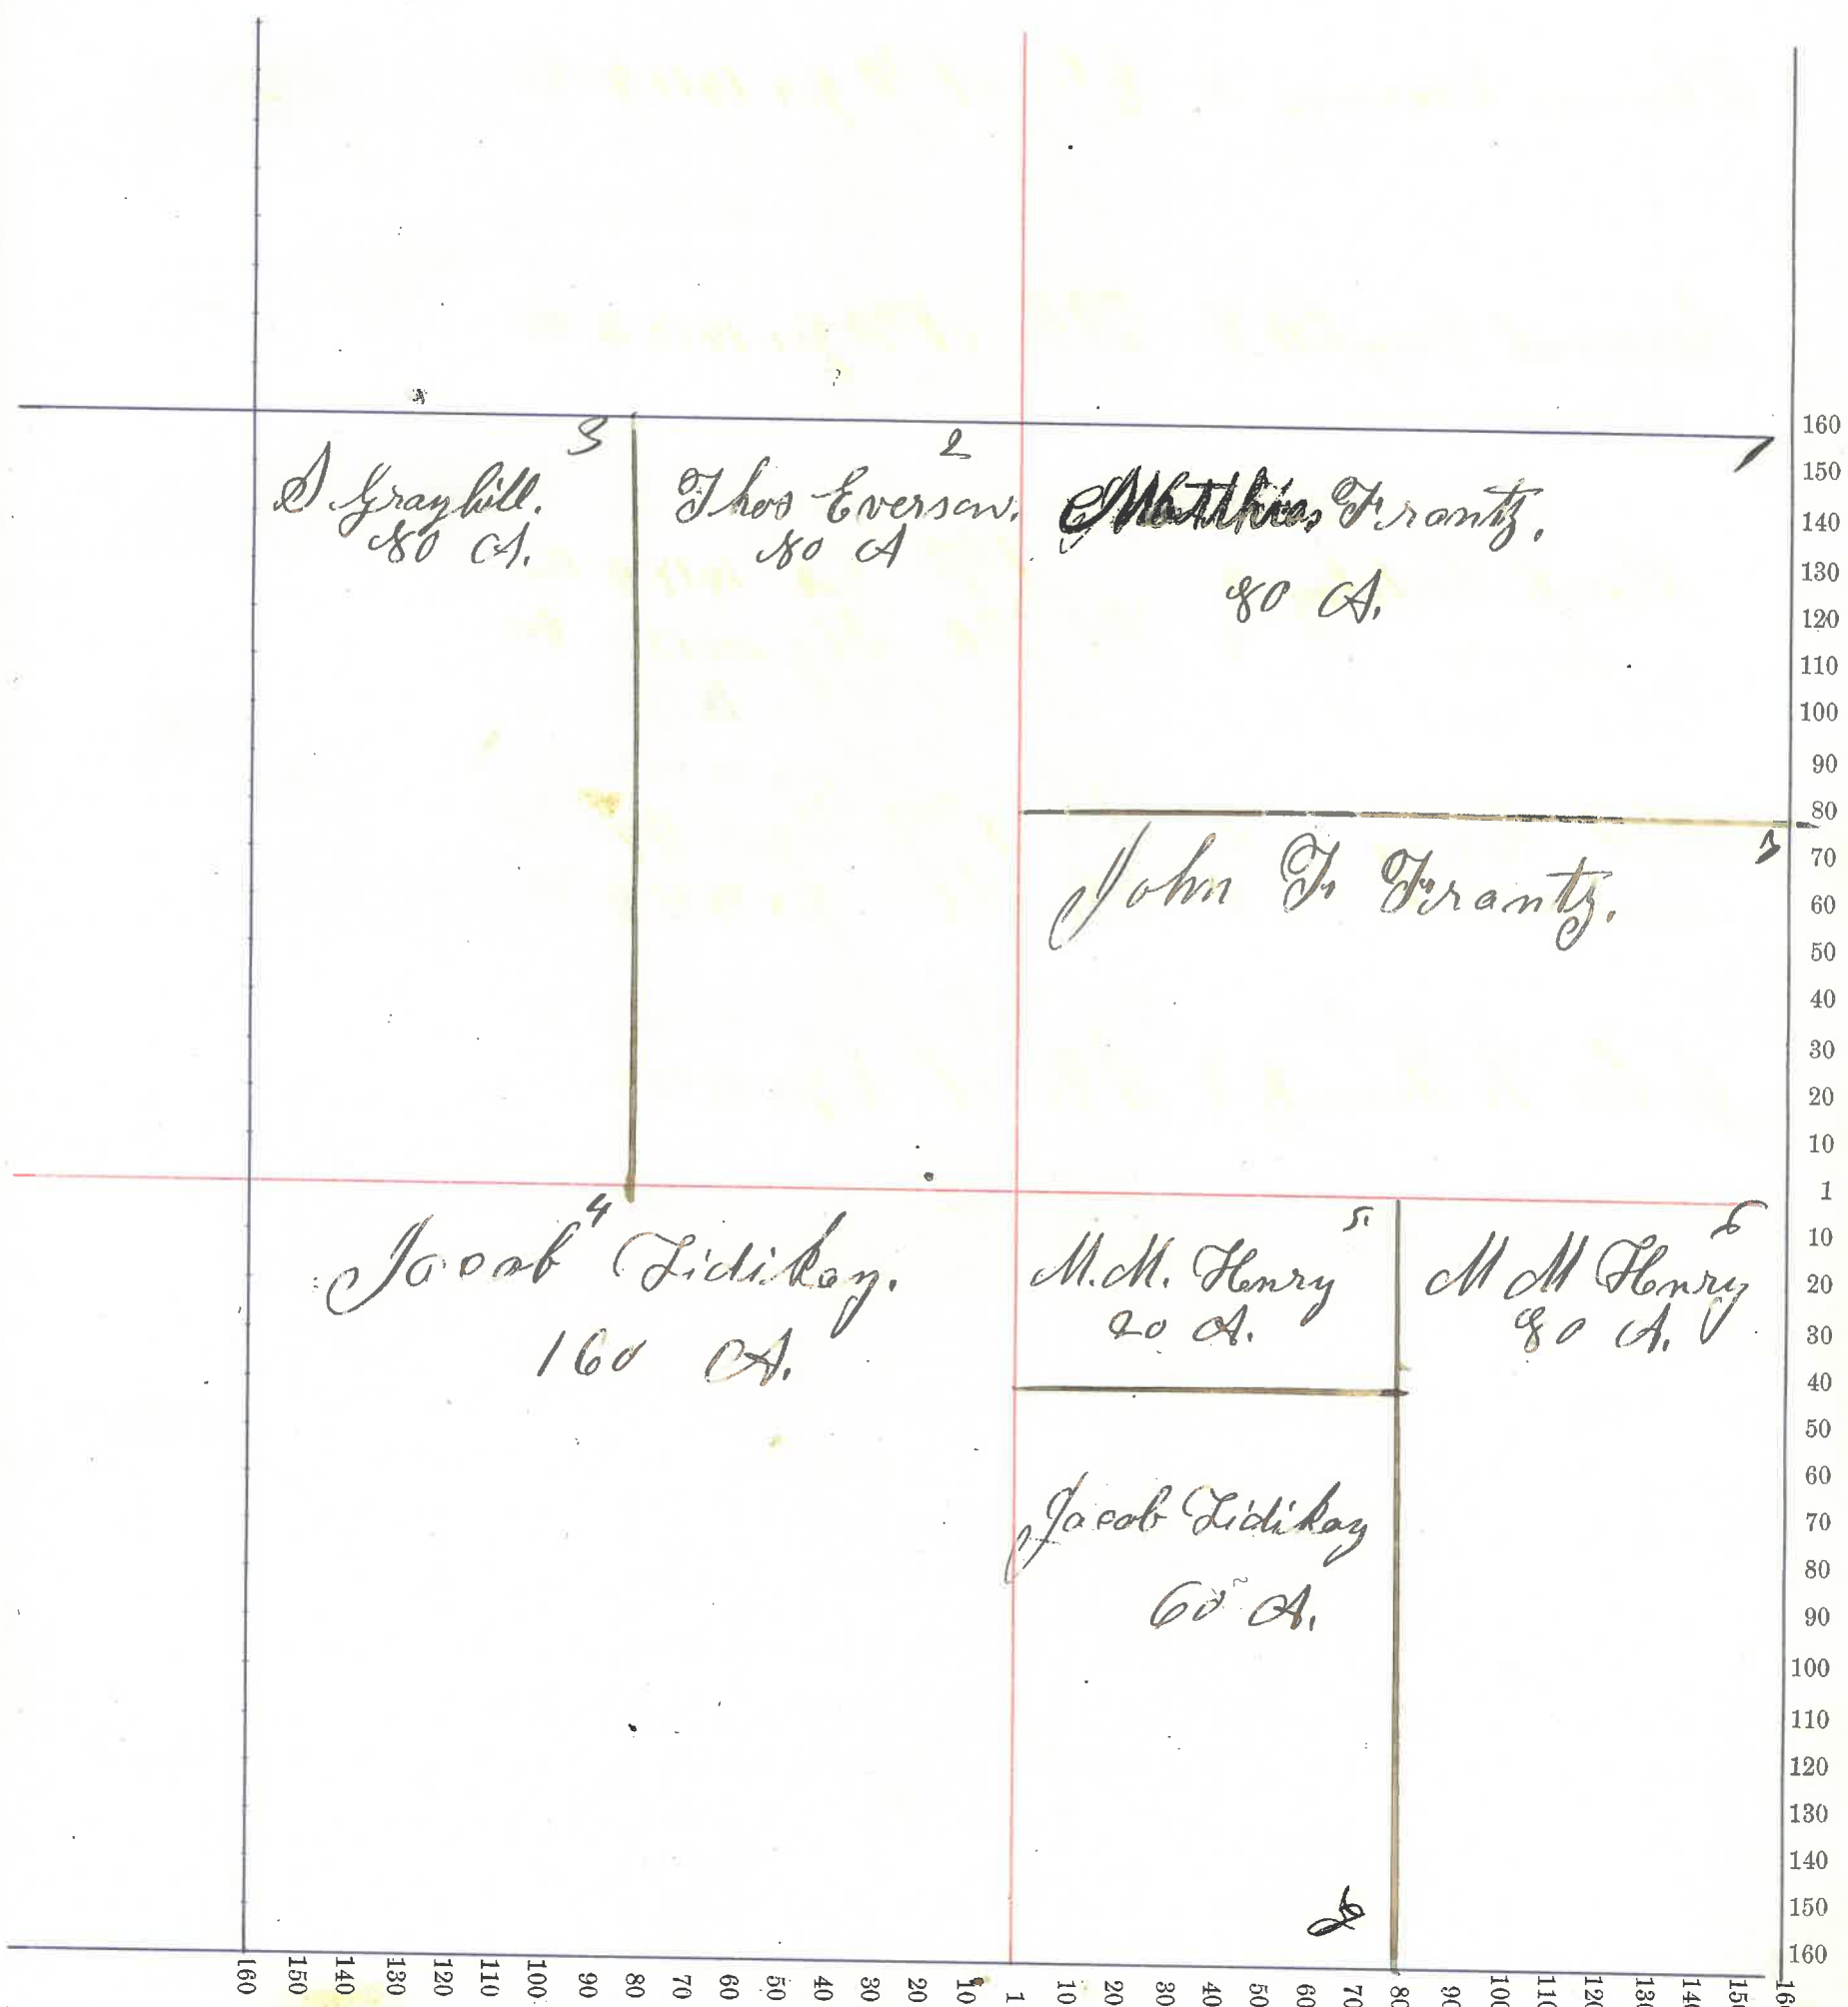 3
S Grayhill.
80 A.
2
Thos Everson.
80 A
1
Matthias Frantz.
80 A.
John F. Frantz.
4
Jacob Lidikay.
160 A.
5.
M.M. Henry
20 A.
6
M M Henry
80 A.
Jacob Lidikay
60 A.
160
150
140
130
120
110
100
90
80
70
60
50
40
30
20
10
1
10
20
30
40
50
60
70
80
90
100
110
120
130
140
150
160
160 150 140 130 120 110 100 90 80 70 60 50 40 30 20 10 1 10 20 30 40 50 60 70 80 90 100 110 120 130 140 150 160